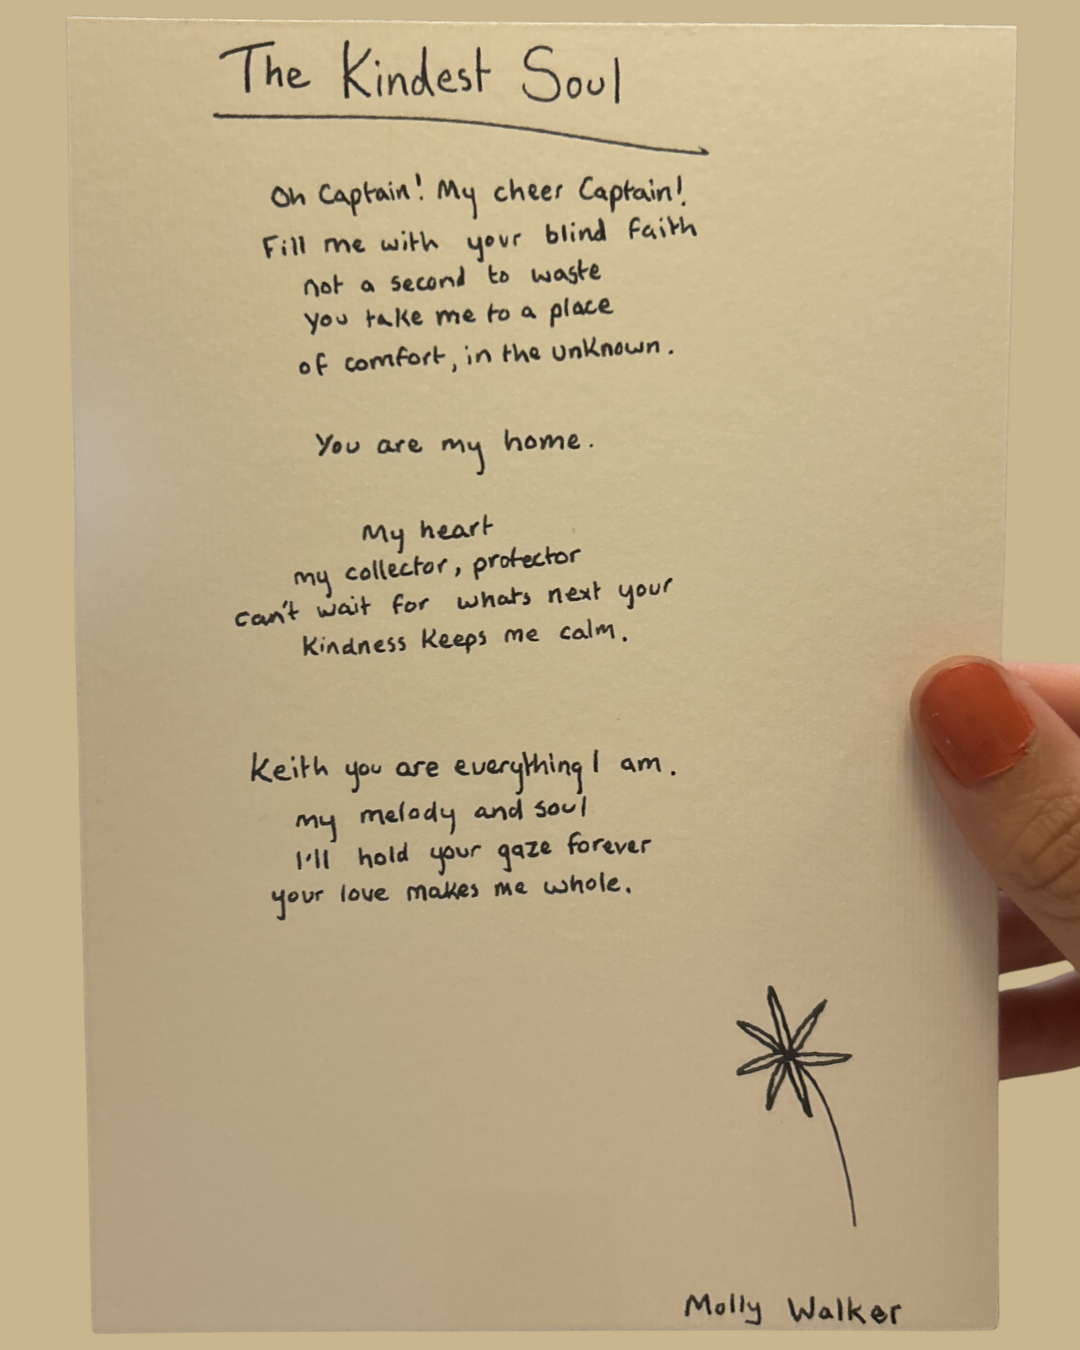 The Kindest Soul
Oh Captain! My cheer Captain!
Fill me with your blind faith
not a second to waste
you take me to a place
of comfort, in the unknown.
You are my home.
My heart
my collector, protector
can't wait for whats next your
kindness keeps me calm.
Keith you are everything I am.
my melody and soul
I'll hold your gaze forever
your love makes me whole.
Molly Walker